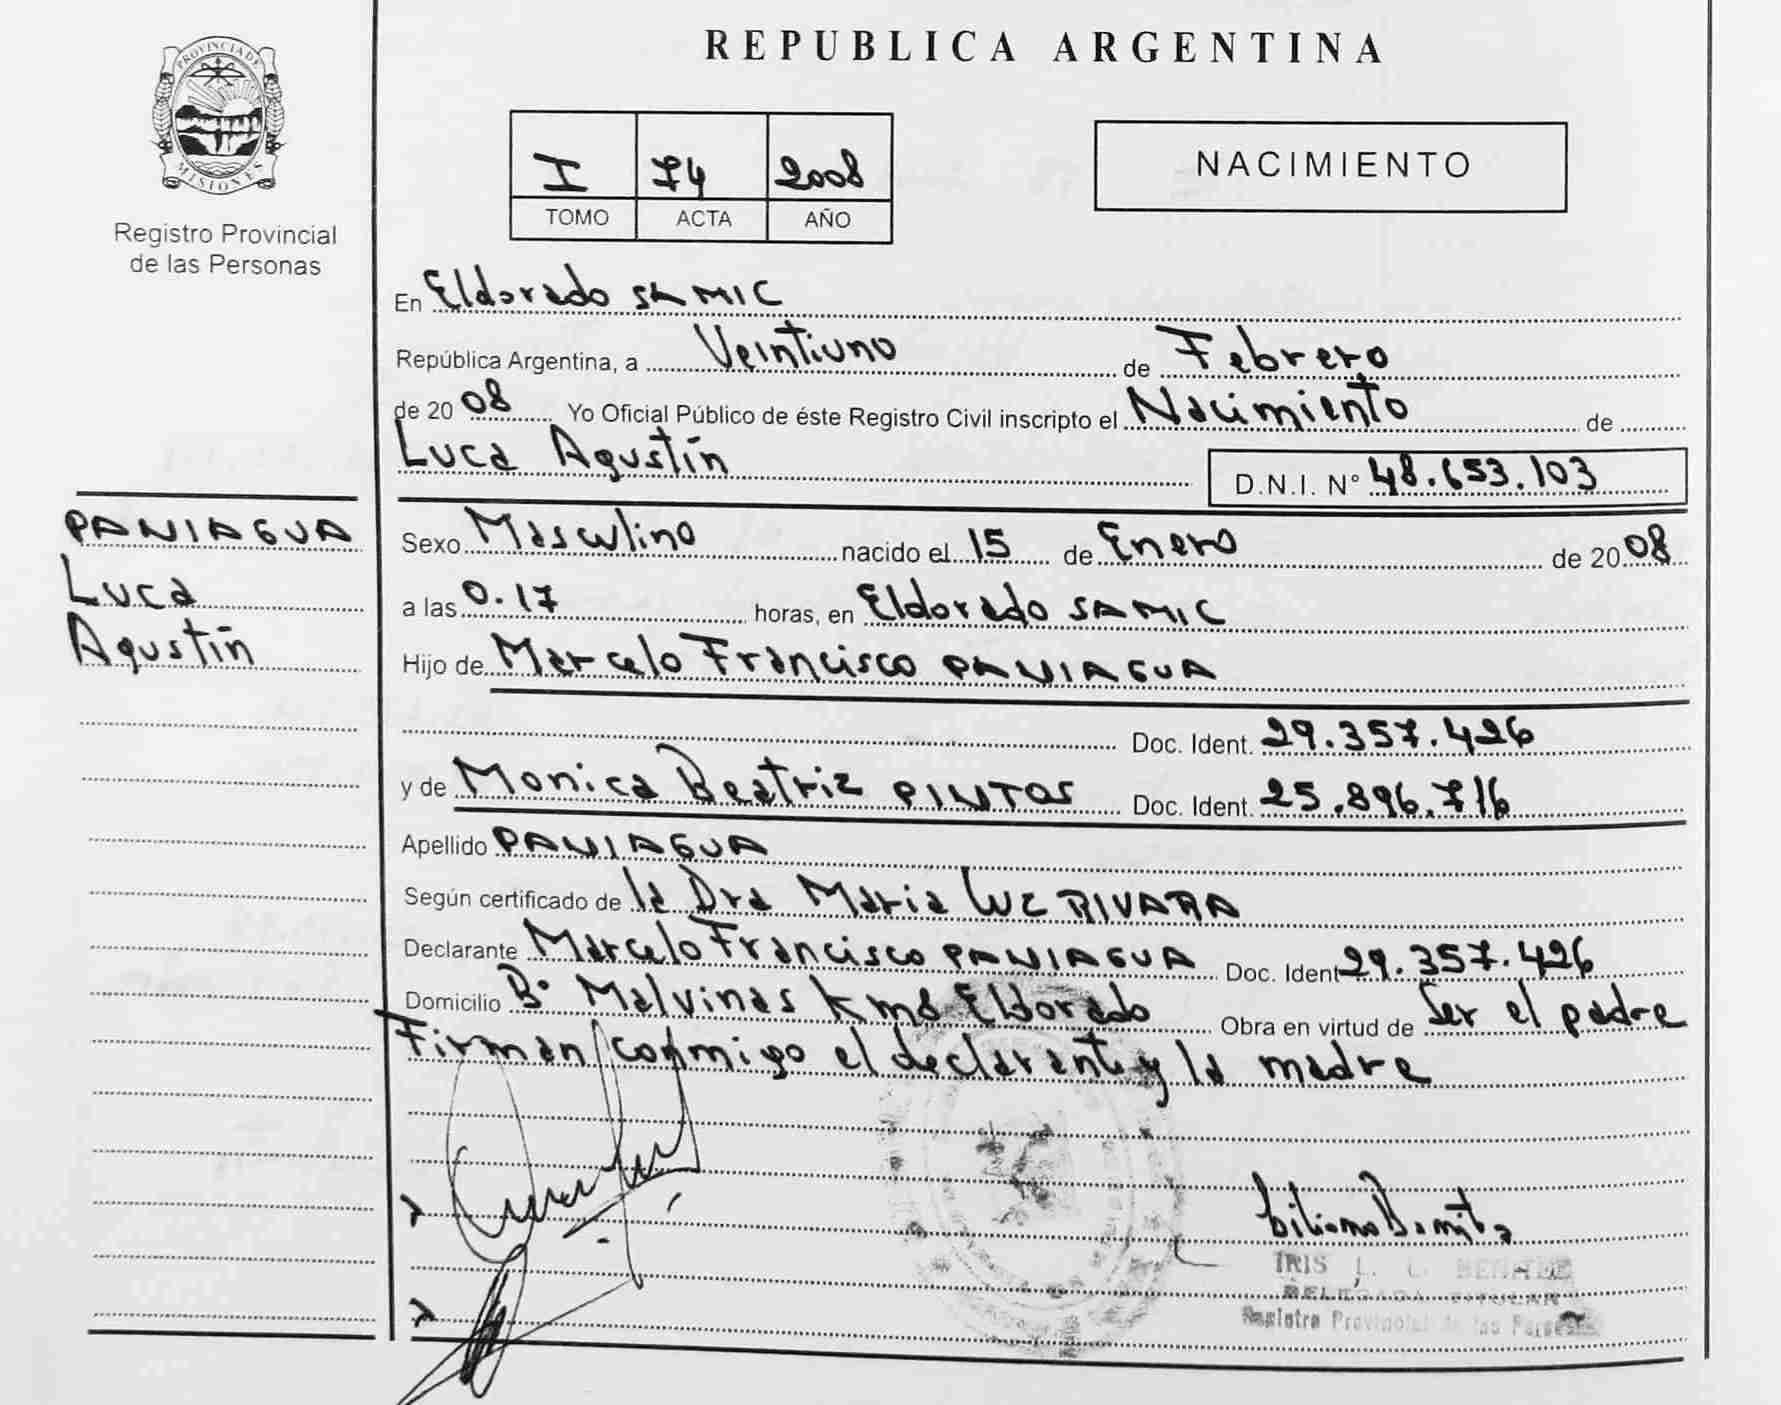 PROVINCIA DE
MISIONES
Registro Provincial
de las Personas
REPUBLICA ARGENTINA
I 74 2008
TOMO ACTA AÑO
NACIMIENTO
En Eldorado SAMIC
República Argentina, a Veintiuno de Febrero
de 2008 Yo Oficial Público de éste Registro Civil inscripto el Nacimiento de
Luca Agustín D.N.I. N° 48.653.103
PANIAGUA
Luca
Agustín
Sexo Masculino nacido el 15 de Enero de 2008
a las 0.17 horas, en Eldorado SAMIC
Hijo de Marcelo Francisco PANIAGUA
Doc. Ident. 29.357.426
y de Monica Beatriz PINTOS Doc. Ident. 25.896.716
Apellido PANIAGUA
Según certificado de la Dra Maria Luz RIVARA
Declarante Marcelo Francisco PANIAGUA Doc. Ident 29.357.426
Domicilio B° Malvinas Km8 Eldorado Obra en virtud de Ser el padre
Firman conmigo el declarante y la madre
IRIS L.
DELEGADA TITULAR
Registro Provincial de las Personas